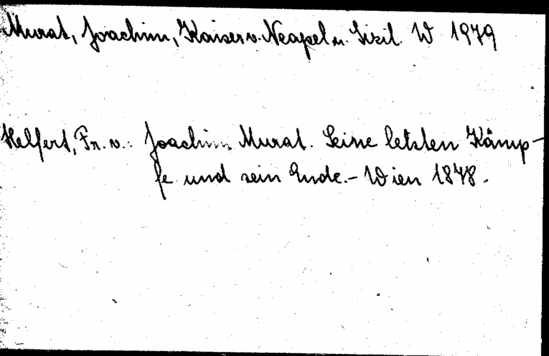 Murat, Joachim, Kaiser v. Neapel u. Sizil. W 1979
Helfert, Fr. v.: Joachim Murat. Seine letzten Kämp-
fe und sein Ende. - Wien 1878.